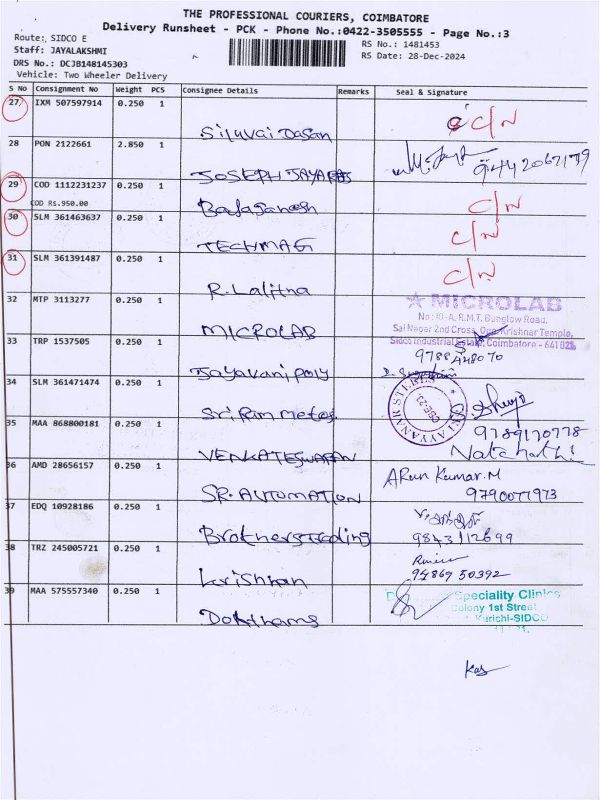 THE PROFESSIONAL COURIERS, COIMBATORE
Delivery Runsheet - PCK - Phone No.:0422-3505555 - Page No.:3
Route: SIDCO E
RS No.: 1481453
Staff: JAYALAKSHMI
RS Date: 28-Dec-2024
DRS No.: DCJB148145303
Vehicle: Two Wheeler Delivery
S No Consignment No Weight PCS Consignee Details Remarks Seal & Signature
27 IXM 507597914 0.250 1
Siluvai Dasan C/N
28 PON 2122661 2.850 1
JOSEPH 9442067179
29 COD 1112231237 0.250 1
COD Rs.950.00 Balaganesh C/N
30 SLM 361463637 0.250 1
TECHMAG C/N
31 SLM 361391487 0.250 1
R. Lalitha C/N
32 MTP 3113277 0.250 1
MICROLAB
MICROLAB
No: 10-A, R.M.T. Bunglow Road,
Sai Nagar 2nd Cross, Opp. Krishnar Temple,
Sidco Industrial Estate, Coimbatore - 641 021.
33 TRP 1537505 0.250 1
Jayavani poly
34 SLM 361471474 0.250 1
Sri Ram Metal
AYYANAR STEELS
CBE-21
9789170778
35 MAA 868800181 0.250 1
VENKATESWARAN Natchathi
36 AMD 28656157 0.250 1
SR. AUTOMATION ARun Kumar.M
9790077973
37 EDQ 10928186 0.250 1
Brothers trading 9843112699
38 TRZ 245005721 0.250 1
krishnan 94869 50392
39 MAA 575557340 0.250 1
Speciality Clinics
Colony 1st Street
Kurichi-SIDCO